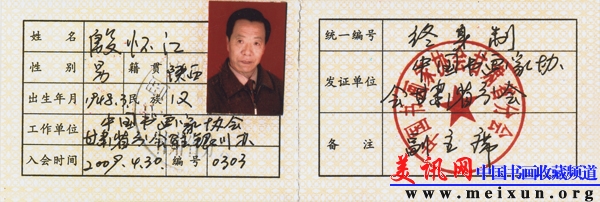 姓名 殷怀江
性别 男 籍贯 陕西
出生年月 1948.3 民族 汉
工作单位 中国书画家协会
甘肃省分会驻银川办
入会时间 2009.4.30 编号 0303
统一编号 终身制
发证单位 中国书画家协
会甘肃省分会
备注 副主席
美讯网 中国书画收藏频道
www.meixun.org